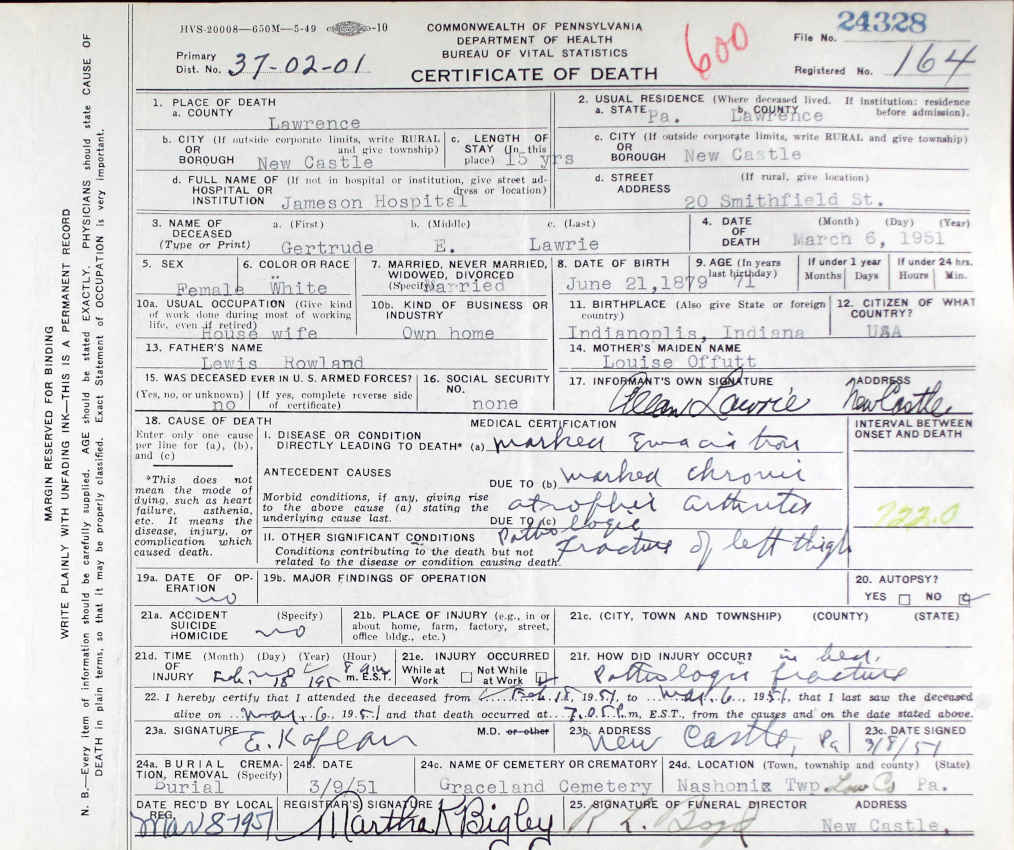 HVS-20008—650M—5-49 —10
COMMONWEALTH OF PENNSYLVANIA
DEPARTMENT OF HEALTH
BUREAU OF VITAL STATISTICS
CERTIFICATE OF DEATH
600
24328
File No.
Registered No. 164
Primary
Dist. No. 37-02-01
MARGIN RESERVED FOR BINDING
WRITE PLAINLY WITH UNFADING INK—THIS IS A PERMANENT RECORD
N. B.—Every item of information should be carefully supplied. AGE should be stated EXACTLY. PHYSICIANS should state CAUSE OF
DEATH in plain terms, so that it may be properly classified. Exact Statement of OCCUPATION is very important.
1. PLACE OF DEATH
a. COUNTY
Lawrence
2. USUAL RESIDENCE (Where deceased lived. If institution: residence
a. STATE b. COUNTY before admission).
Pa. Lawrence
b. CITY (If outside corporate limits, write RURAL
OR and give township)
BOROUGH New Castle
c. LENGTH OF
STAY (In this
place) 15 yrs
c. CITY (If outside corporate limits, write RURAL and give township)
OR
BOROUGH New Castle
d. FULL NAME OF (If not in hospital or institution, give street ad-
HOSPITAL OR dress or location)
INSTITUTION Jameson Hospital
d. STREET (If rural, give location)
ADDRESS
20 Smithfield St.
3. NAME OF a. (First) b. (Middle) c. (Last)
DECEASED
(Type or Print) Gertrude E. Lawrie
4. DATE (Month) (Day) (Year)
OF
DEATH March 6, 1951
5. SEX
Female
6. COLOR OR RACE
White
7. MARRIED, NEVER MARRIED,
WIDOWED, DIVORCED
(Specify) Married
8. DATE OF BIRTH
June 21,1879
9. AGE (In years
last birthday)
71
If under 1 year
Months Days
If under 24 hrs.
Hours Min.
10a. USUAL OCCUPATION (Give kind
of work done during most of working
life, even if retired)
House wife
10b. KIND OF BUSINESS OR
INDUSTRY
Own home
11. BIRTHPLACE (Also give State or foreign
country)
Indianoplis, Indiana
12. CITIZEN OF WHAT
COUNTRY?
USA
13. FATHER'S NAME
Lewis Rowland
14. MOTHER'S MAIDEN NAME
Louise Offutt
15. WAS DECEASED EVER IN U. S. ARMED FORCES?
(Yes, no, or unknown) (If yes, complete reverse side
of certificate)
no
16. SOCIAL SECURITY
NO.
none
17. INFORMANT'S OWN SIGNATURE ADDRESS
Allan Lawrie New Castle
18. CAUSE OF DEATH
MEDICAL CERTIFICATION
INTERVAL BETWEEN
ONSET AND DEATH
Enter only one cause
per line for (a), (b),
and (c)
*This does not
mean the mode of
dying, such as heart
failure, asthenia,
etc. It means the
disease, injury, or
complication which
caused death.
I. DISEASE OR CONDITION
DIRECTLY LEADING TO DEATH* (a) marked Emaciation
ANTECEDENT CAUSES
DUE TO (b) marked chronic
Morbid conditions, if any, giving rise
to the above cause (a) stating the
underlying cause last.
atrophic arthrites
DUE TO (c)
Pathologic
722.0
II. OTHER SIGNIFICANT CONDITIONS
Conditions contributing to the death but not
related to the disease or condition causing death.
fracture of left thigh
19a. DATE OF OP-
ERATION
no
19b. MAJOR FINDINGS OF OPERATION
20. AUTOPSY?
YES NO
21a. ACCIDENT (Specify)
SUICIDE
HOMICIDE no
21b. PLACE OF INJURY (e.g., in or
about home, farm, factory, street,
office bldg., etc.)
21c. (CITY, TOWN AND TOWNSHIP) (COUNTY) (STATE)
21d. TIME (Month) (Day) (Year) (Hour)
OF
INJURY Feb. 18 195 8 m. E.S.T.
21e. INJURY OCCURRED
While at Not While
Work at Work
21f. HOW DID INJURY OCCUR? in bed.
Pathologic fracture
22. I hereby certify that I attended the deceased from Feb. 18, 1951, to Mar. 6, 1951, that I last saw the deceased
alive on Mar. 6, 1951 and that death occurred at 7.05 P.m, E.S.T., from the causes and on the date stated above.
23a. SIGNATURE M.D. or other
E. Kaplan
23b. ADDRESS
New Castle, Pa
23c. DATE SIGNED
3/8/51
24a. BURIAL CREMA-
TION, REMOVAL (Specify)
Burial
24b. DATE
3/9/51
24c. NAME OF CEMETERY OR CREMATORY
Graceland Cemetery
24d. LOCATION (Town, township and county) (State)
Nashonix Twp Law Co Pa.
DATE REC'D BY LOCAL
REG.
Mar 8 1951
REGISTRAR'S SIGNATURE
Martha K Bigley
25. SIGNATURE OF FUNERAL DIRECTOR ADDRESS
R L Boyd
New Castle,